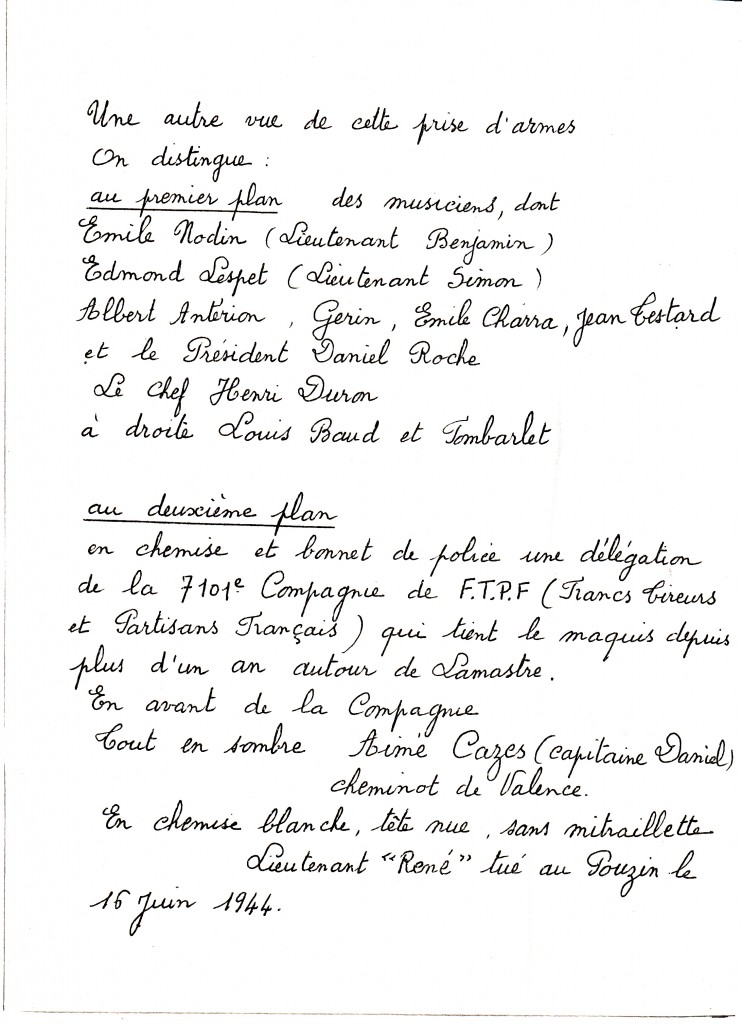 Une autre vue de cette prise d'armes
On distingue :
au premier plan des musiciens, dont
Emile Nodin (Lieutenant Benjamin)
Edmond Lespet (Lieutenant Simon)
Albert Antérion, Gerin, Emile Charra, Jean Testard
et le Président Daniel Roche
Le chef Henri Duron
à droite Louis Baud et Tombarlet
au deuxième plan
en chemise et bonnet de police une délégation
de la 7101e Compagnie de F.T.P.F (Francs Tireurs
et Partisans Français) qui tient le maquis depuis
plus d'un an autour de Lamastre.
En avant de la Compagnie
Tout en sombre Aimé Cazes (capitaine Daniel)
cheminot de Valence.
En chemise blanche, tête nue, sans mitraillette
Lieutenant "René" tué au Pouzin le
16 Juin 1944.